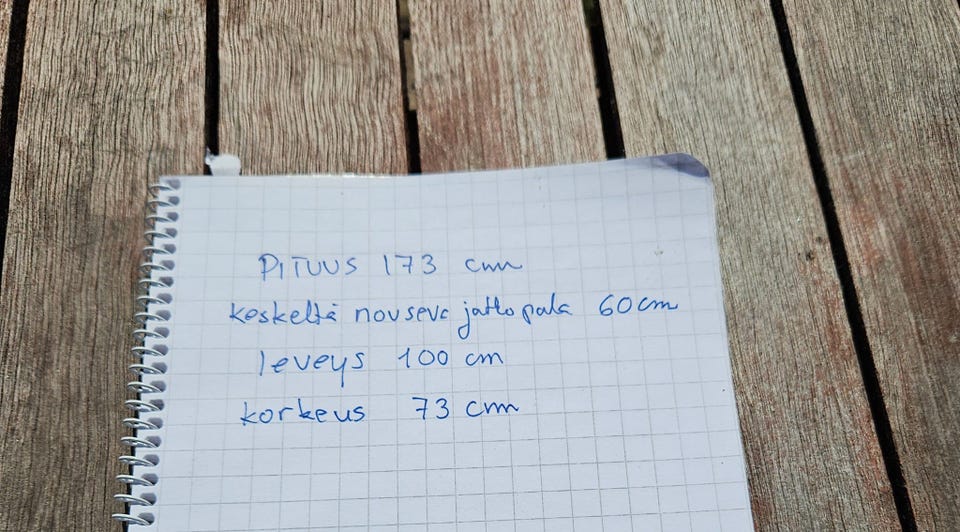 PITUUS 173 cm
keskeltä nouseva jatkopala 60 cm
leveys 100 cm
korkeus 73 cm